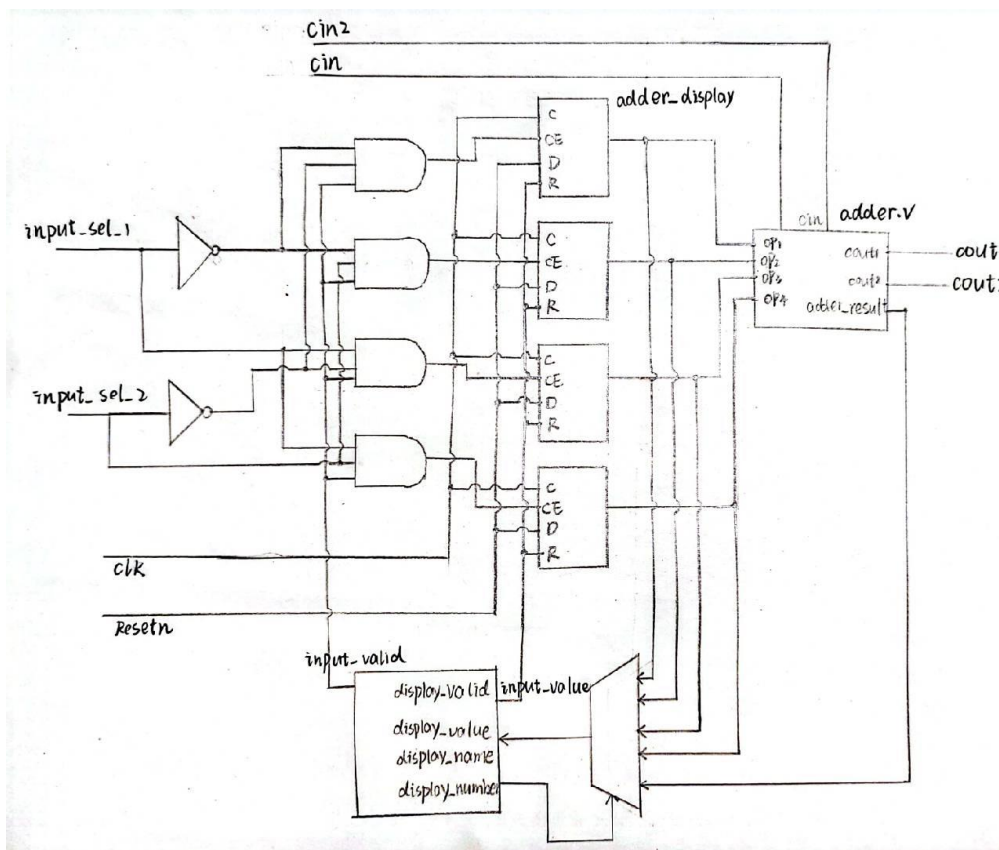 Cin2
Cin
adder_display
C
CE
D
R
input_sel_1
cin
adder.v
C
CE
D
R
OP1
OP2
OP3
OP4
cout1
cout2
adder_result
cout
cout
input_sel_2
C
CE
D
R
C
CE
D
R
clk
Resetn
input_valid
display_valid
input_value
display_value
display_name
display_number